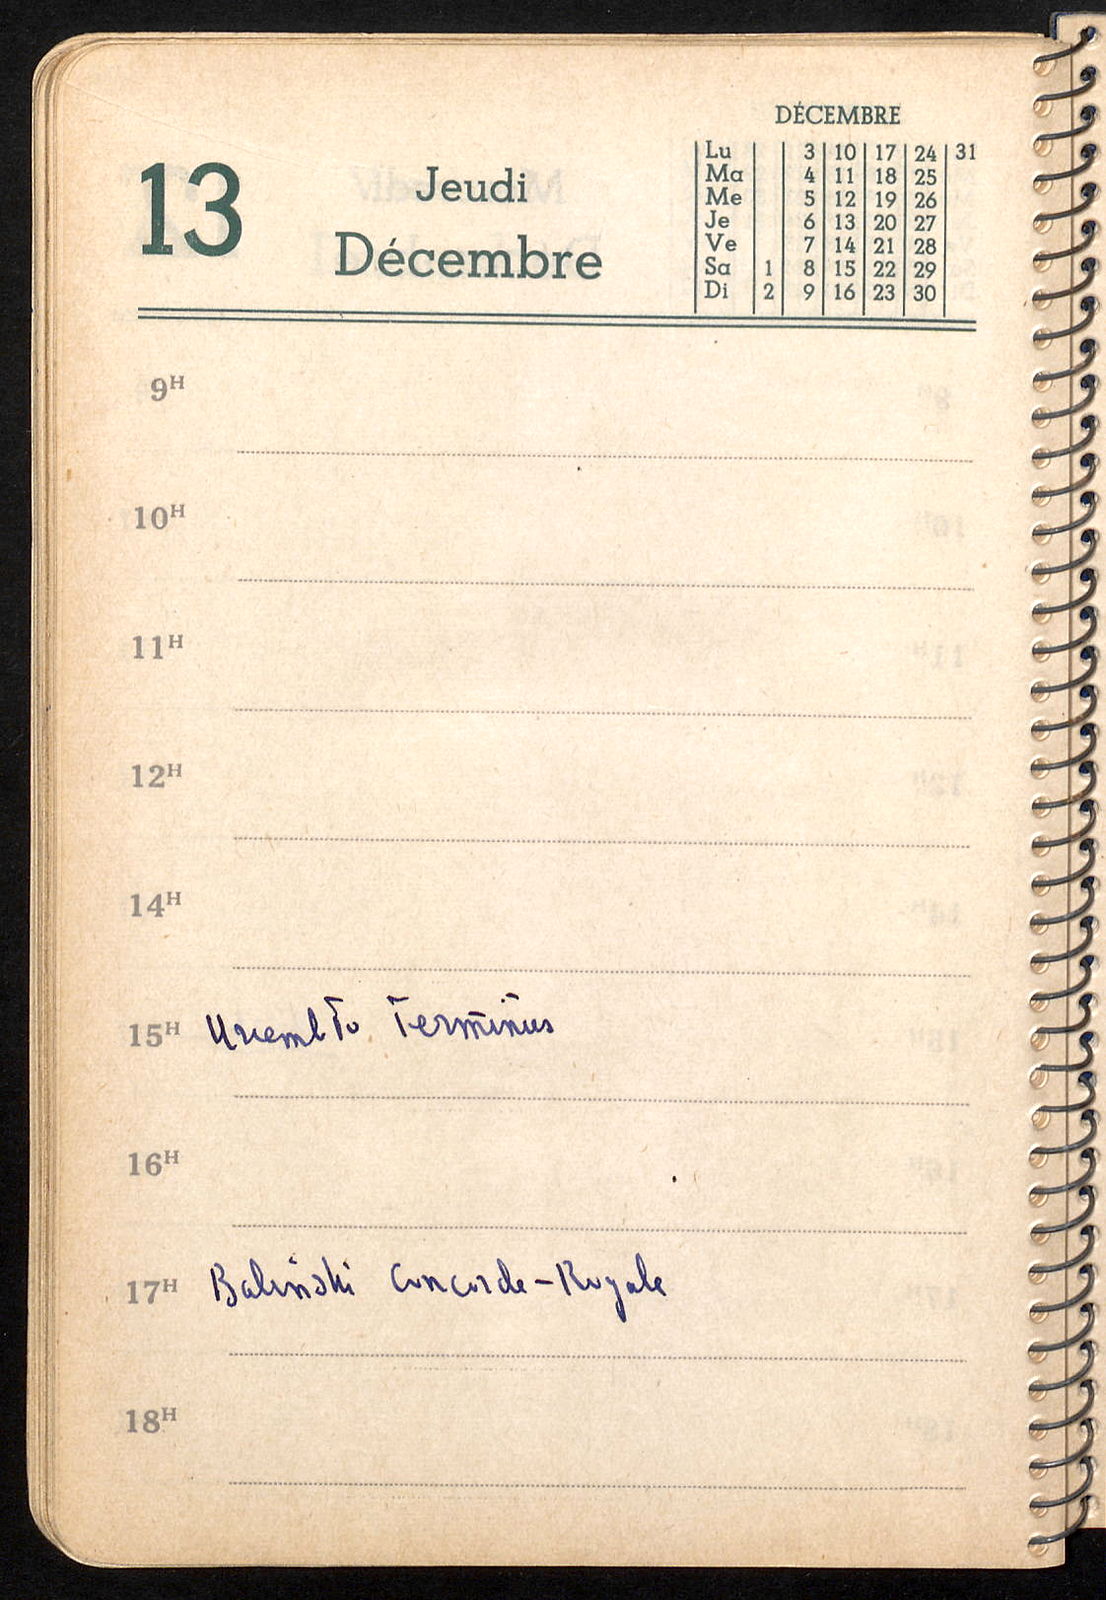 13
Jeudi
Décembre
DÉCEMBRE
Lu 3 10 17 24 31
Ma 4 11 18 25
Me 5 12 19 26
Je 6 13 20 27
Ve 7 14 21 28
Sa 1 8 15 22 29
Di 2 9 16 23 30
9H
10H
11H
12H
14H
15H Terminus
16H
17H Baliński Concorde-Royale
18H